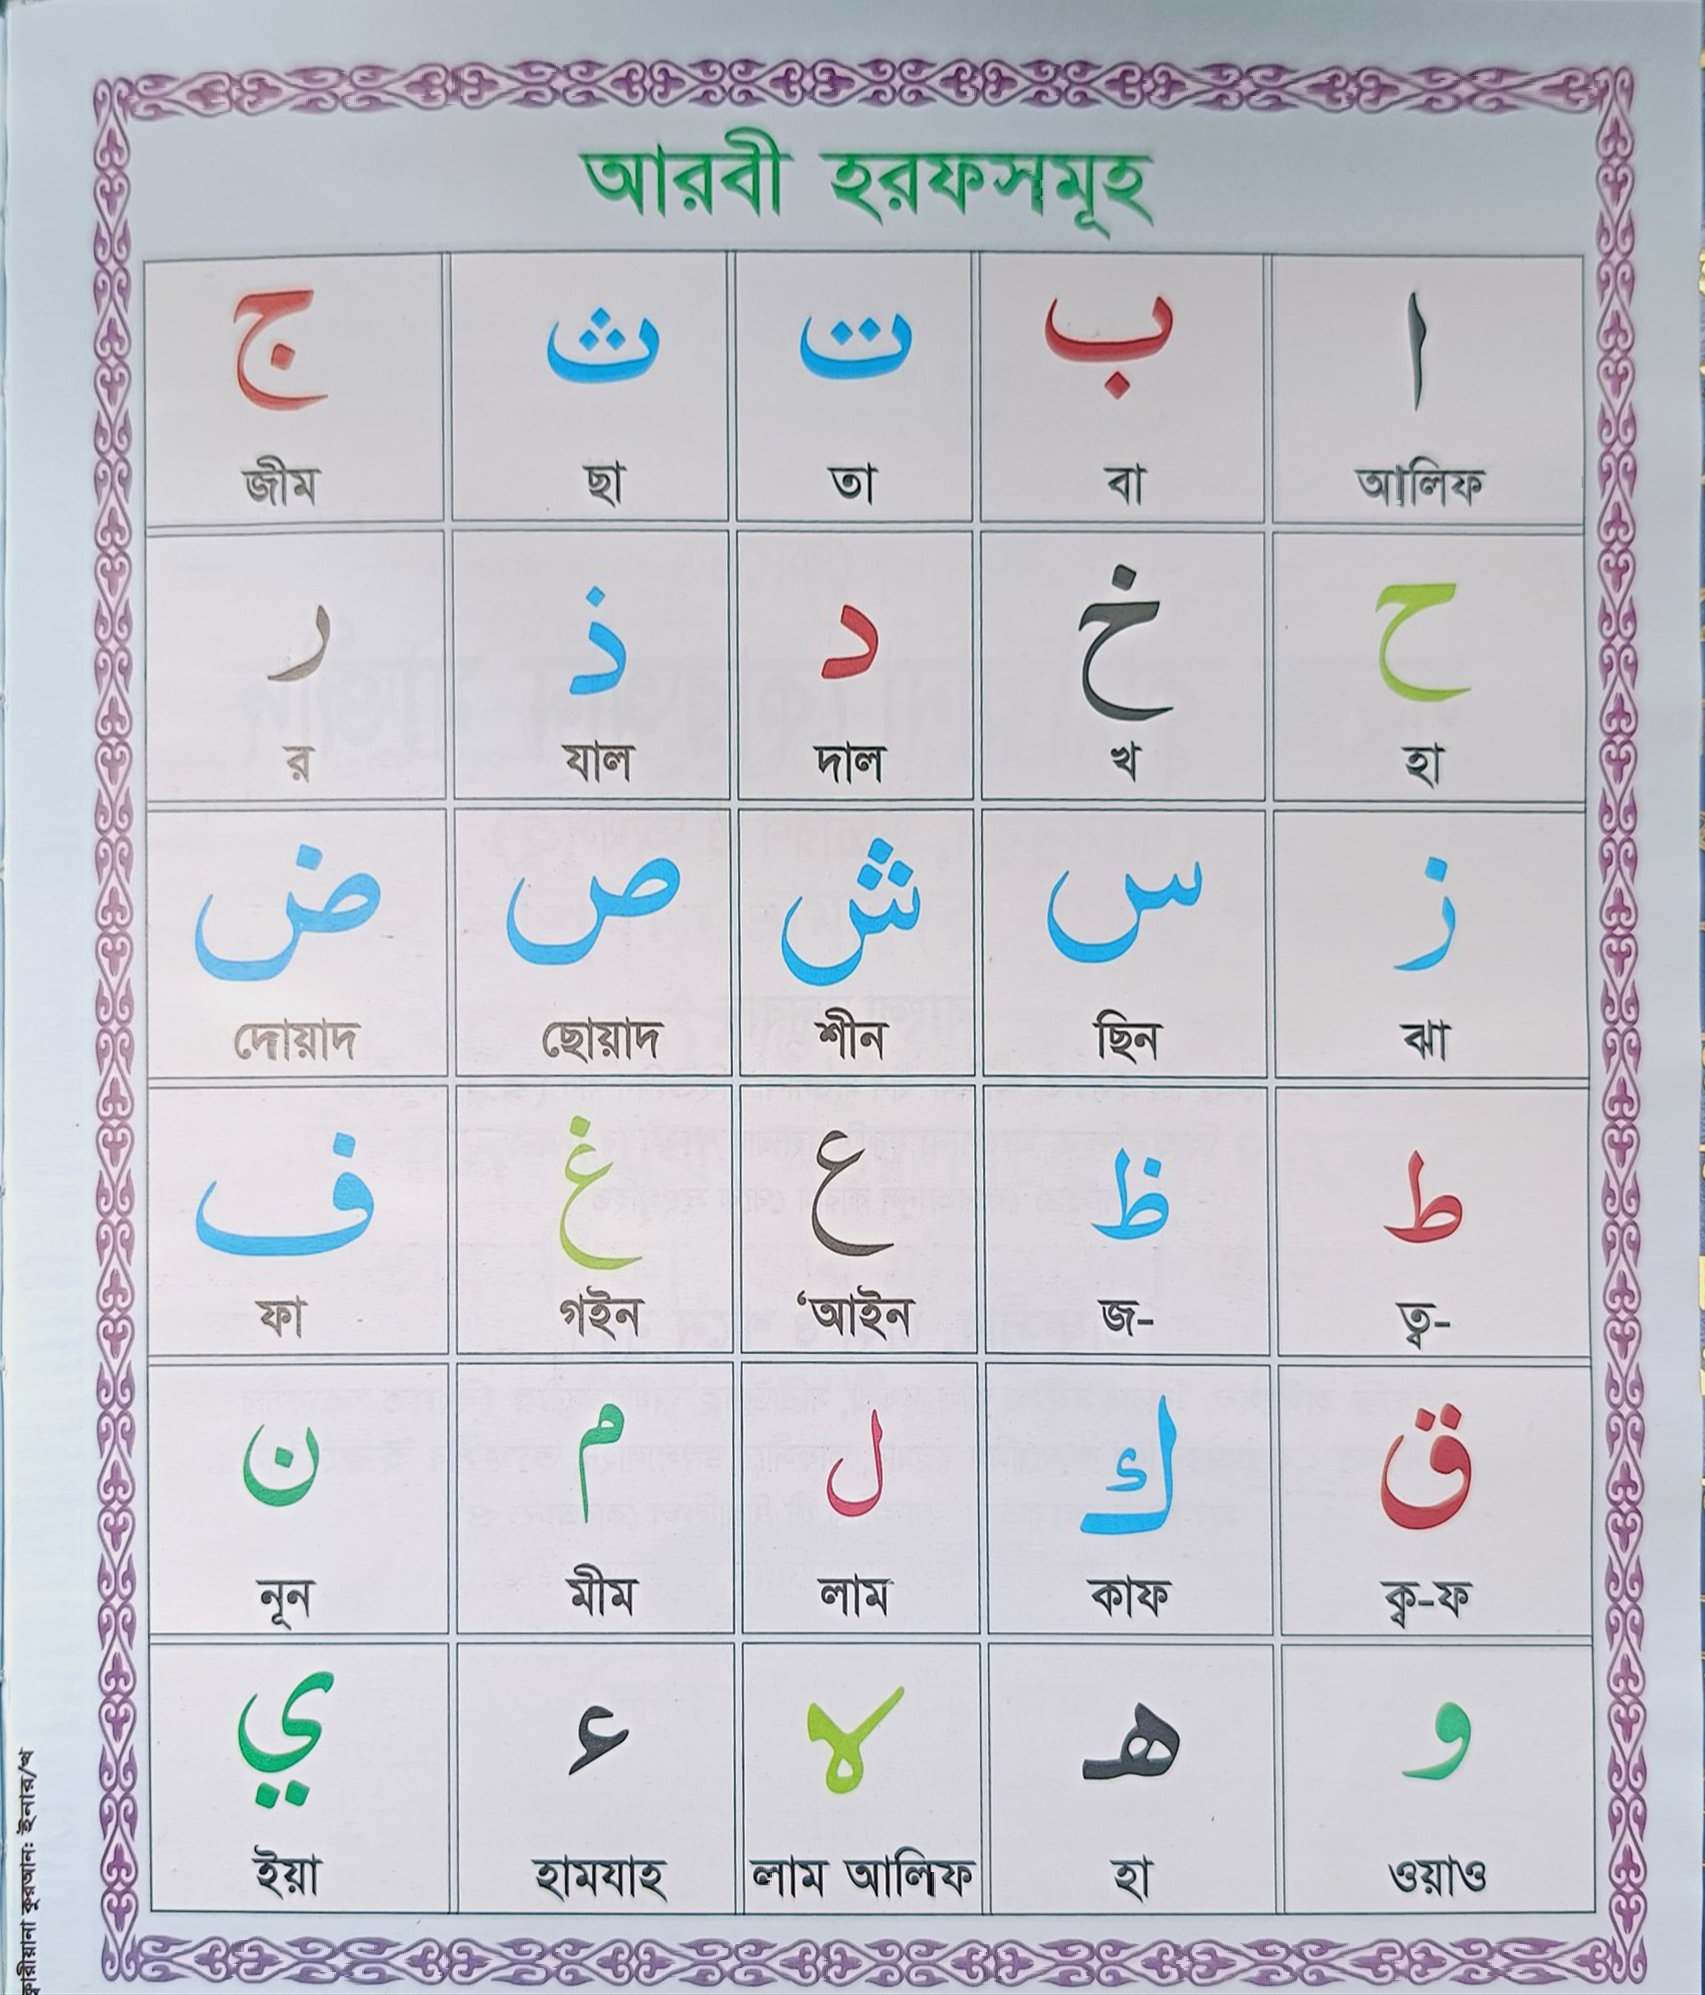 আরবী হরফসমূহ
ا ب ت ث ج
আলিফ বা তা ছা জীম
ح خ د ذ ر
হা খ দাল যাল র
ز س ش ص ض
ঝা ছিন শীন ছোয়াদ দোয়াদ
ط ظ ع غ ف
ত্ব- জ- ‘আইন গইন ফা
ق ك ل م ن
ক্ব-ফ কাফ লাম মীম নূন
و ه لا ء ي
ওয়াও হা লাম আলিফ হামযাহ ইয়া
কুরআন: ইনার/খ